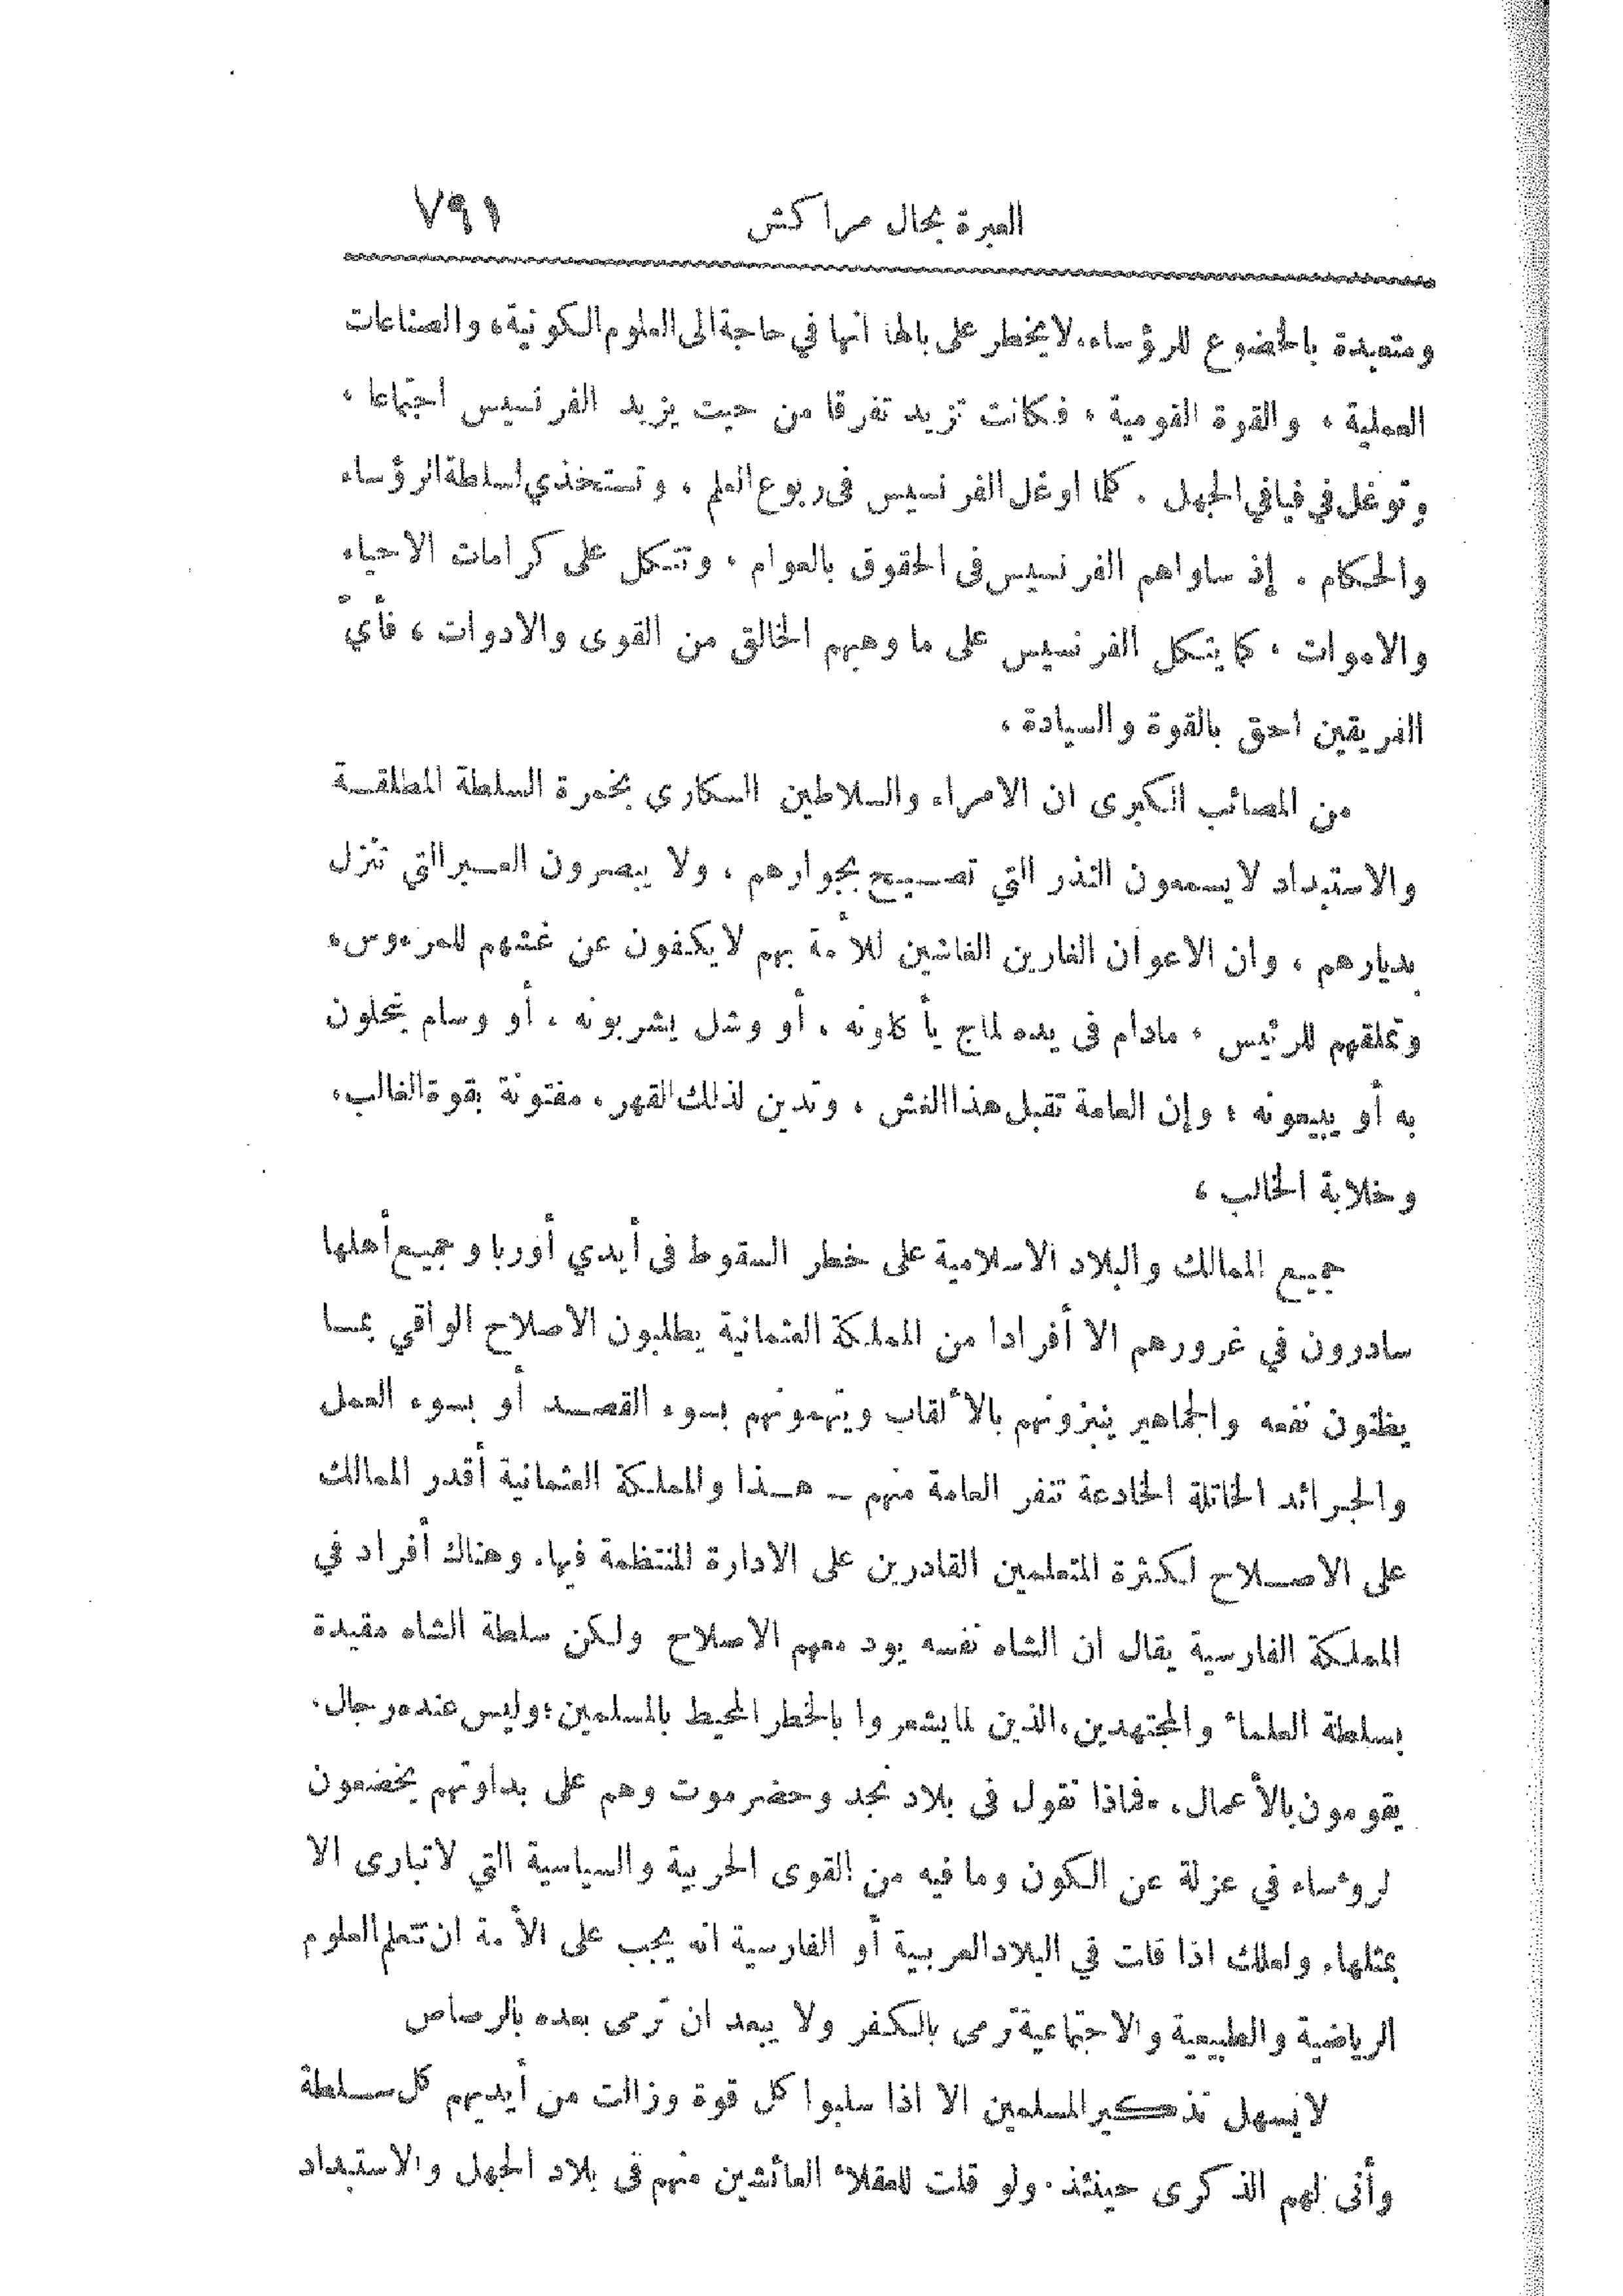 العبرة بحال مراكش
٧٩١
ومتعبدة بالخضوع للرؤساء، لا يخطر على بالها انها في حاجة الى العلوم الكونية، والصناعات
العملية، والقوة القومية، فكانت تزيد تفرقا من حيث يزيد الفرنسيس اجتماعا،
وتوغل في فيافي الجهل. كلما اوغل الفرنسيس فى ربوع العلم، وتستخذي لسلطة الرؤساء
والحكام. إذ ساواهم الفرنسيس فى الحقوق بالعوام، وتتكل على كرامات الاحياء
والاموات، كما يتكل الفرنسيس على ما وهبهم الخالق من القوى والادوات، فأيّ
الفريقين احق بالقوة والسيادة،
من المصائب الكبرى ان الامراء والسلاطين السكارى بخمرة السلطة المطلقة
والاستبداد لا يسمعون النذر التي تصيح بجوارهم، ولا يبصرون العبر التي تنزل
بديارهم، وان الاعوان الغارين الغاشين للأمة بهم لا يكفون عن غشهم للمرءوس،
وتملقهم للرئيس، مادام فى يده لماج يأكلونه، أو وشل يشربونه، أو وسام يتحلون
به أو يبيعونه؛ وإن العامة تقبل هذا الغش، وتدين لذلك القهر، مفتونة بقوة الغالب،
وخلابة الخالب،
جميع الممالك والبلاد الاسلامية على خطر السقوط فى أيدي أوربا وجميع أهلها
سادرون في غرورهم الا أفرادا من المملكة العثمانية يطلبون الاصلاح الواقي بما
يظنون نفعه والجماهير ينبزونهم بالألقاب ويتهمونهم بسوء القصد أو بسوء العمل
والجرائد الخاتلة الخادعة تنفر العامة منهم ــ هذا والمملكة العثمانية أقدر الممالك
على الاصلاح لكثرة المتعلمين القادرين على الادارة المنتظمة فيها. وهناك أفراد في
المملكة الفارسية يقال ان الشاه نفسه يود معهم الاصلاح ولكن سلطة الشاه مقيدة
بسلطة العلماء والمجتهدين، الذين لما يشعروا بالخطر المحيط بالمسلمين؛ وليس عنده رجال.
يقومون بالأعمال،. فماذا نقول فى بلاد نجد وحضرموت وهم على بداوتهم يخضعون
لرؤساء في عزلة عن الكون وما فيه من القوى الحربية والسياسية التي لا تبارى الا
بمثلها. ولعلك اذا قلت في البلاد العربية أو الفارسية انه يجب على الأمة ان تتعلم العلوم
الرياضية والطبيعية والاجتماعية ترمى بالكفر ولا يبعد ان ترمى بعده بالرصاص
لا يسهل تذكير المسلمين الا اذا سلبوا كل قوة وزالت من أيديهم كل سلطة
وأنى لهم الذكرى حينئذ. ولو قلت للعقلاء العائشين منهم فى بلاد الجهل والاستبداد